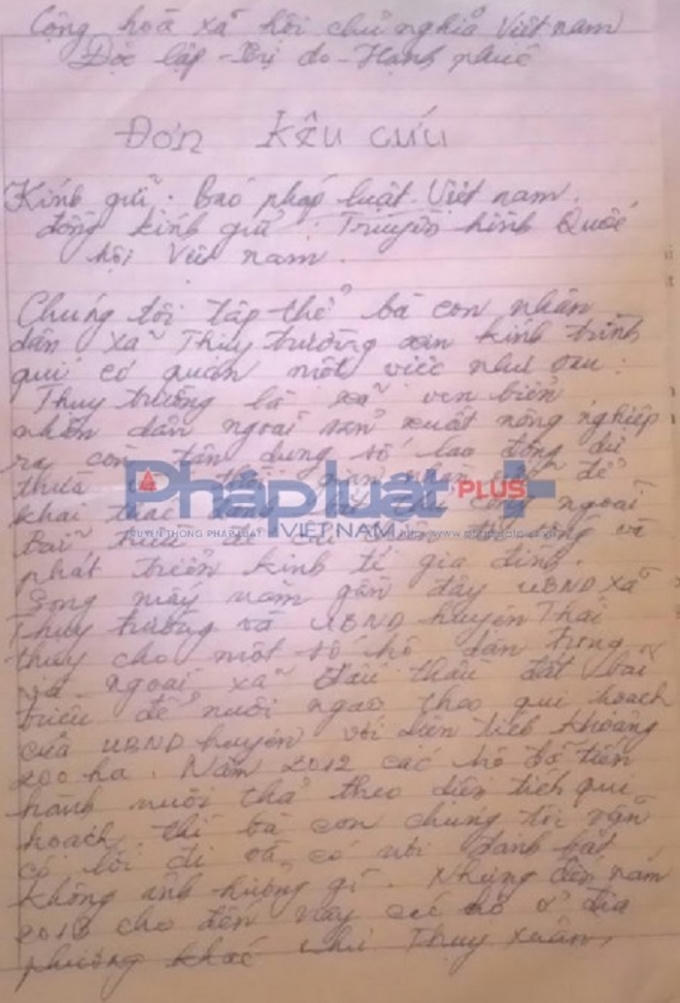 Cộng hoà xã hội chủ nghĩa Việt nam
Độc lập - Tự do - Hạnh phúc
Đơn Kêu cứu
Kính gửi: Báo pháp luật Việt nam.
đồng kính gửi: Truyền hình Quốc
hội Việt nam.
Chúng tôi tập thể bà con nhân
dân xã Thụy trường xin kính trình
quí cơ quan một việc như sau:
Thụy trường là xã ven biển
nhân dân ngoài sản xuất nông nghiệp
ra còn tận dụng số lao động dư
thừa thời gian để
khai thác ngoài
Bãi triều để và
phát triển kinh tế gia đình.
Song mấy năm gần đây UBND xã
Thụy trường và UBND huyện Thái
thụy cho một số hộ dân trong
và ngoài xã đấu thầu đất bãi
triều để nuôi ngao theo qui hoạch
của UBND huyện với diện tích khoảng
200 ha. Năm 2012 các hộ đó tiến
hành nuôi thả theo diện tích qui
hoạch thì bà con chúng tôi vẫn
có lối đi và có nơi đánh bắt
không ảnh hưởng gì. Nhưng đến năm
cho đến nay các hộ ở địa
phương khác như Thụy Xuân,
Pháp luật PLUS+
VIỆT NAM
TRUYỀN THÔNG PHÁP LUẬT